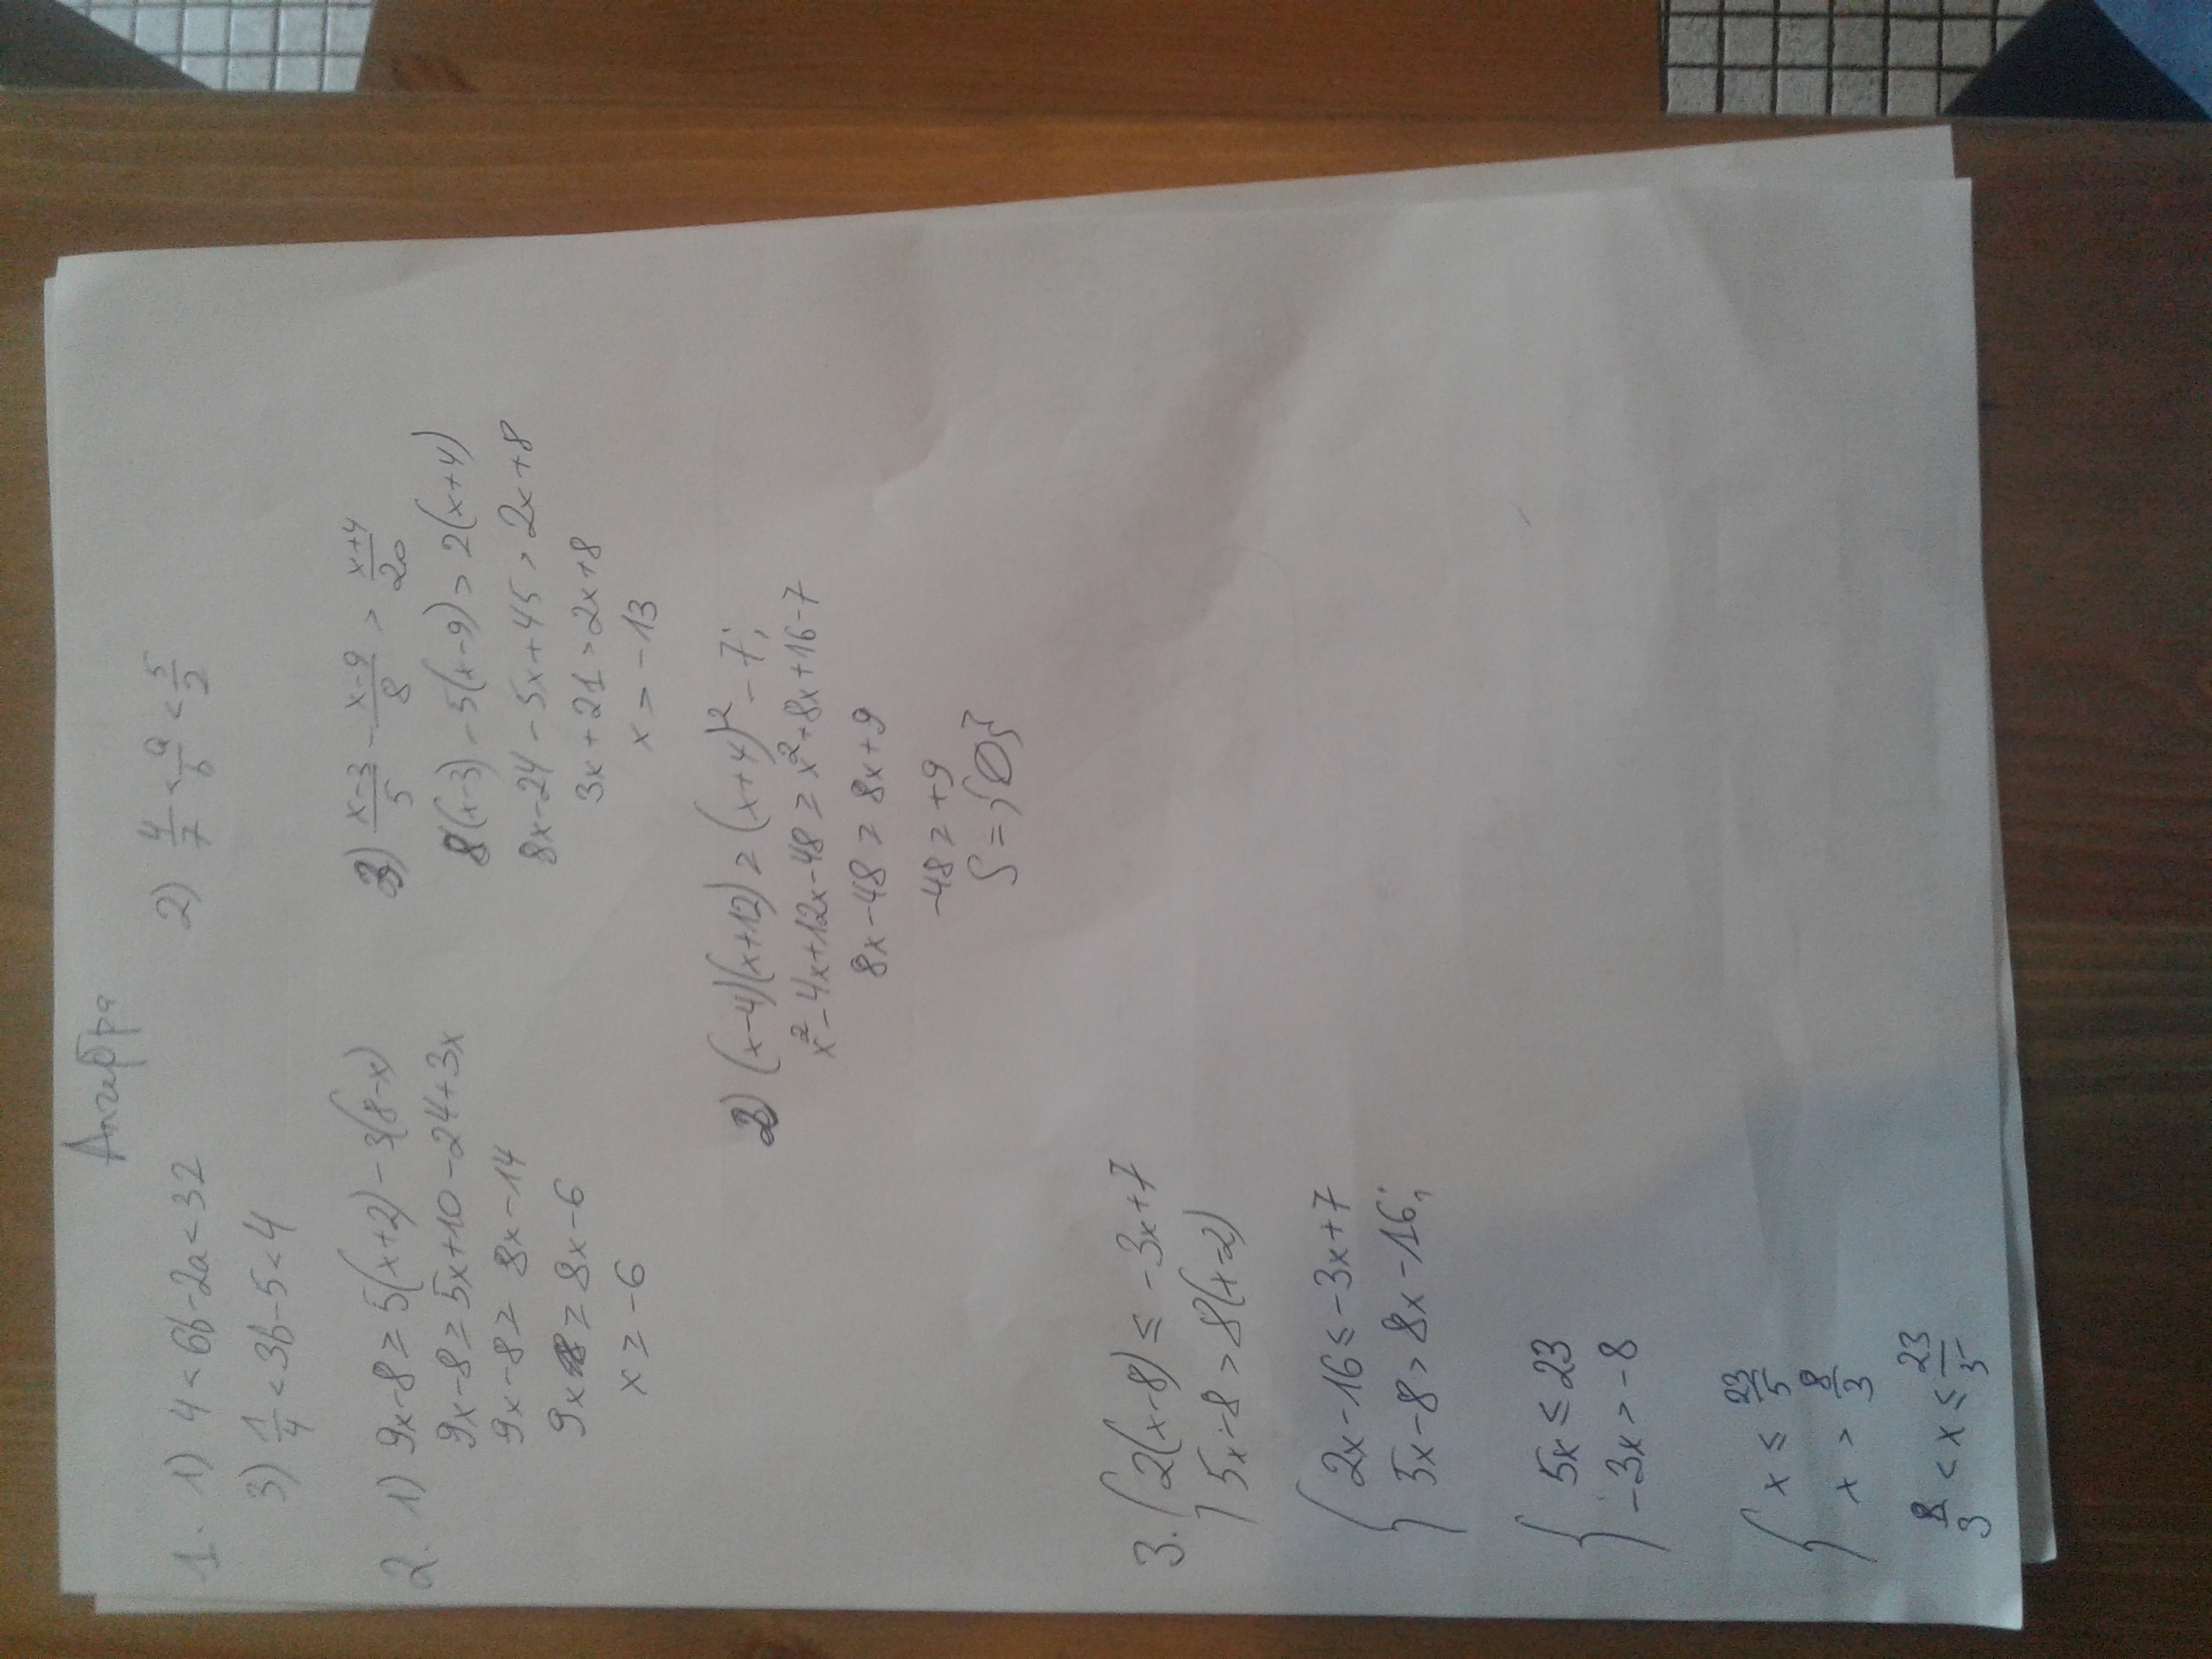 Алгебра
1. 1) 4 < 6b - 2a < 32
2) 4/7 < a/b < 5/2
3) 1/4 < 3b - 5 < 4
2. 1) 9x - 8 ≥ 5(x+2) - 3(8-x)
9x - 8 ≥ 5x + 10 - 24 + 3x
9x - 8 ≥ 8x - 14
9x ≥ 8x - 6
x ≥ -6
2) (x-3)/5 - (x-9)/8 > (x+4)/20
8(x-3) - 5(x-9) > 2(x+4)
8x - 24 - 5x + 45 > 2x + 8
3x + 21 > 2x + 8
x > -13
3) (x-4)(x+12) ≥ (x+4)² - 7;
x² - 4x + 12x - 48 ≥ x² + 8x + 16 - 7
8x - 48 ≥ 8x + 9
-48 ≥ +9
S = {∅}
3. { 2(x-8) ≤ -3x + 7
5x - 8 > 8(x-2)
{ 2x - 16 ≤ -3x + 7
5x - 8 > 8x - 16;
{ 5x ≤ 23
-3x > -8
{ x ≤ 23/5
x > 8/3
8/3 < x ≤ 23/5